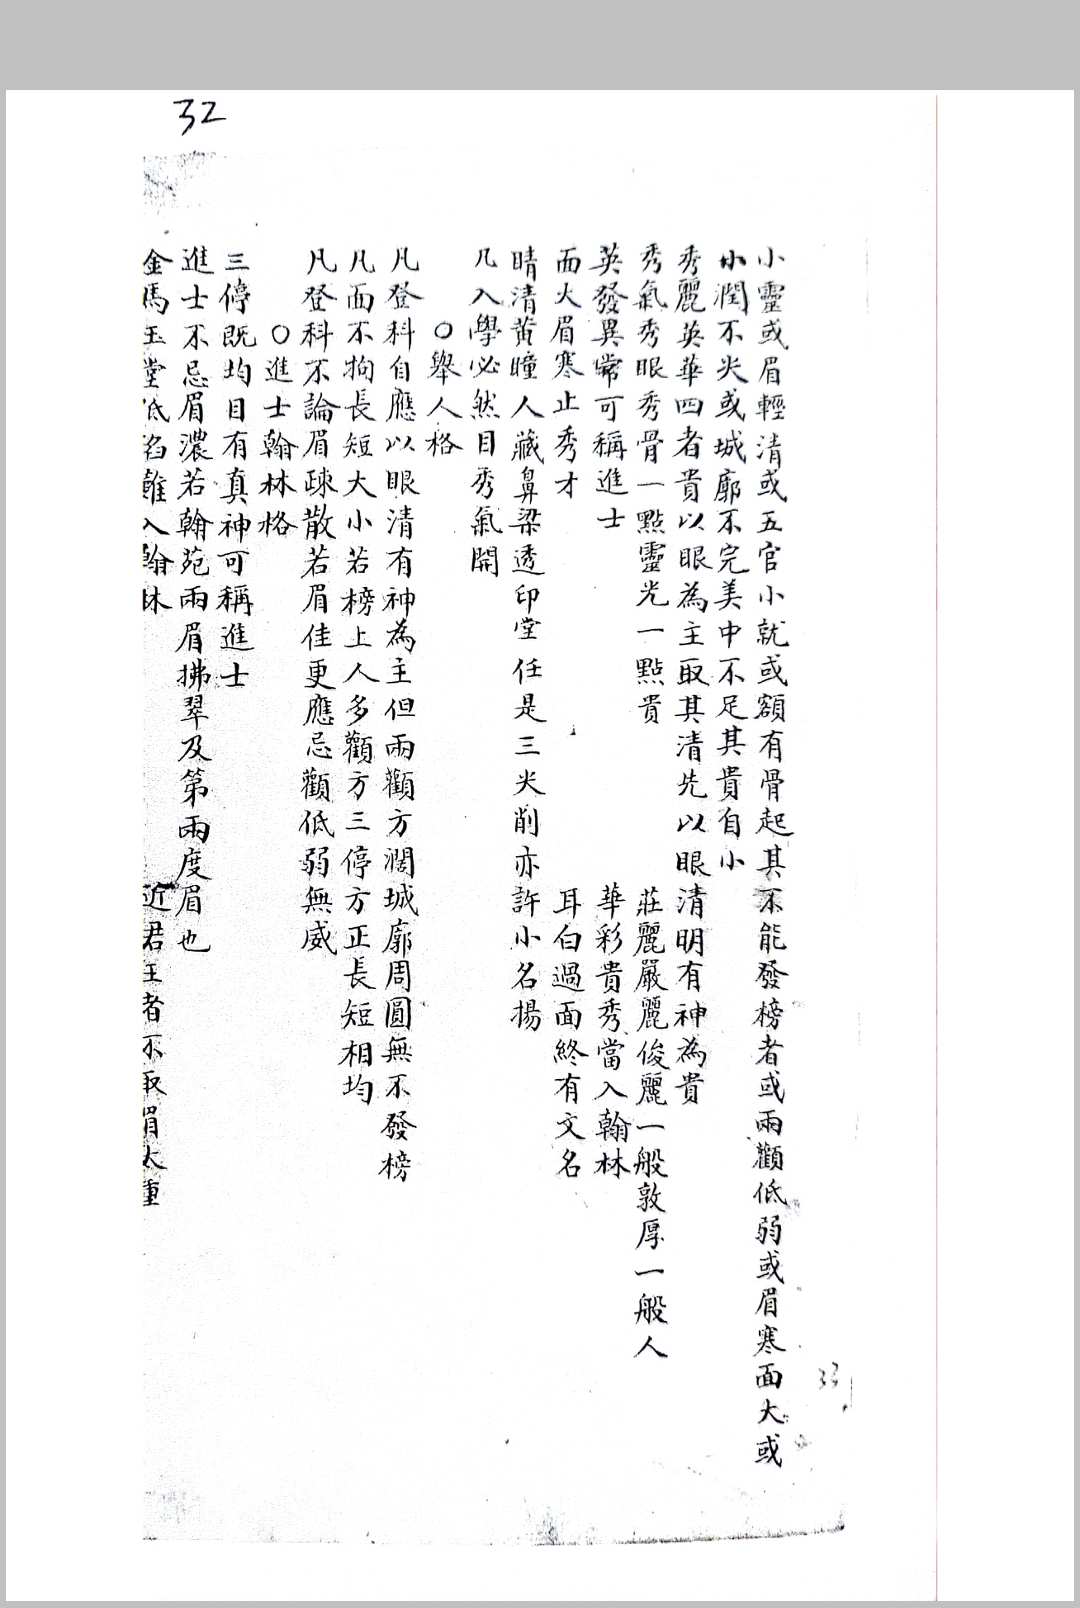 32
小靈或眉輕清或五官小就或額有骨起其不能發榜者或兩顴低弱或眉寒面大或
小潤不尖或城廓不完美中不足其貴自小
秀麗英華四者貴以眼為主取其清先以眼清明有神為貴
秀氣秀眼秀骨一點靈光一點貴 莊麗嚴麗俊麗一般敦厚一般人
英發異常可稱進士 華彩貴秀當入翰林
面大眉寒止秀才 耳白過面終有文名
睛清黃瞳人藏鼻梁透印堂任是三尖削亦許小名揚
凡入學必然目秀氣開
○舉人格
凡登科自應以眼清有神為主但兩顴方濶城廓周圓無不發榜
凡面不拘長短大小若榜上人多顴方三停方正長短相均
凡登科不論眉疎散若眉佳更應忌顴低弱無威
○進士翰林格
三停既均目有真神可稱進士
進士不忌眉濃若翰苑兩眉拂翠及第兩度眉也
金馬玉堂低陷難入翰林 近君王者不取眉太重
33